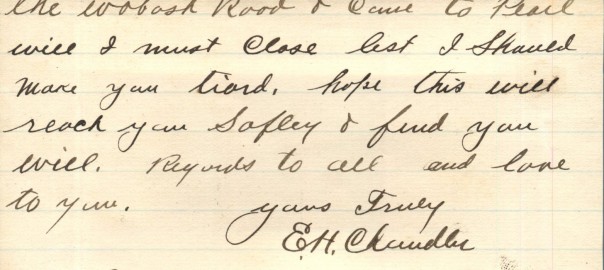 the Wobash Road & Came to Pearl
will I must Close lest I Should
make you tiard. hope this will
reach you Safley & find you
will. Regards to all and love
to you. yours Truly
E.H. Chandler